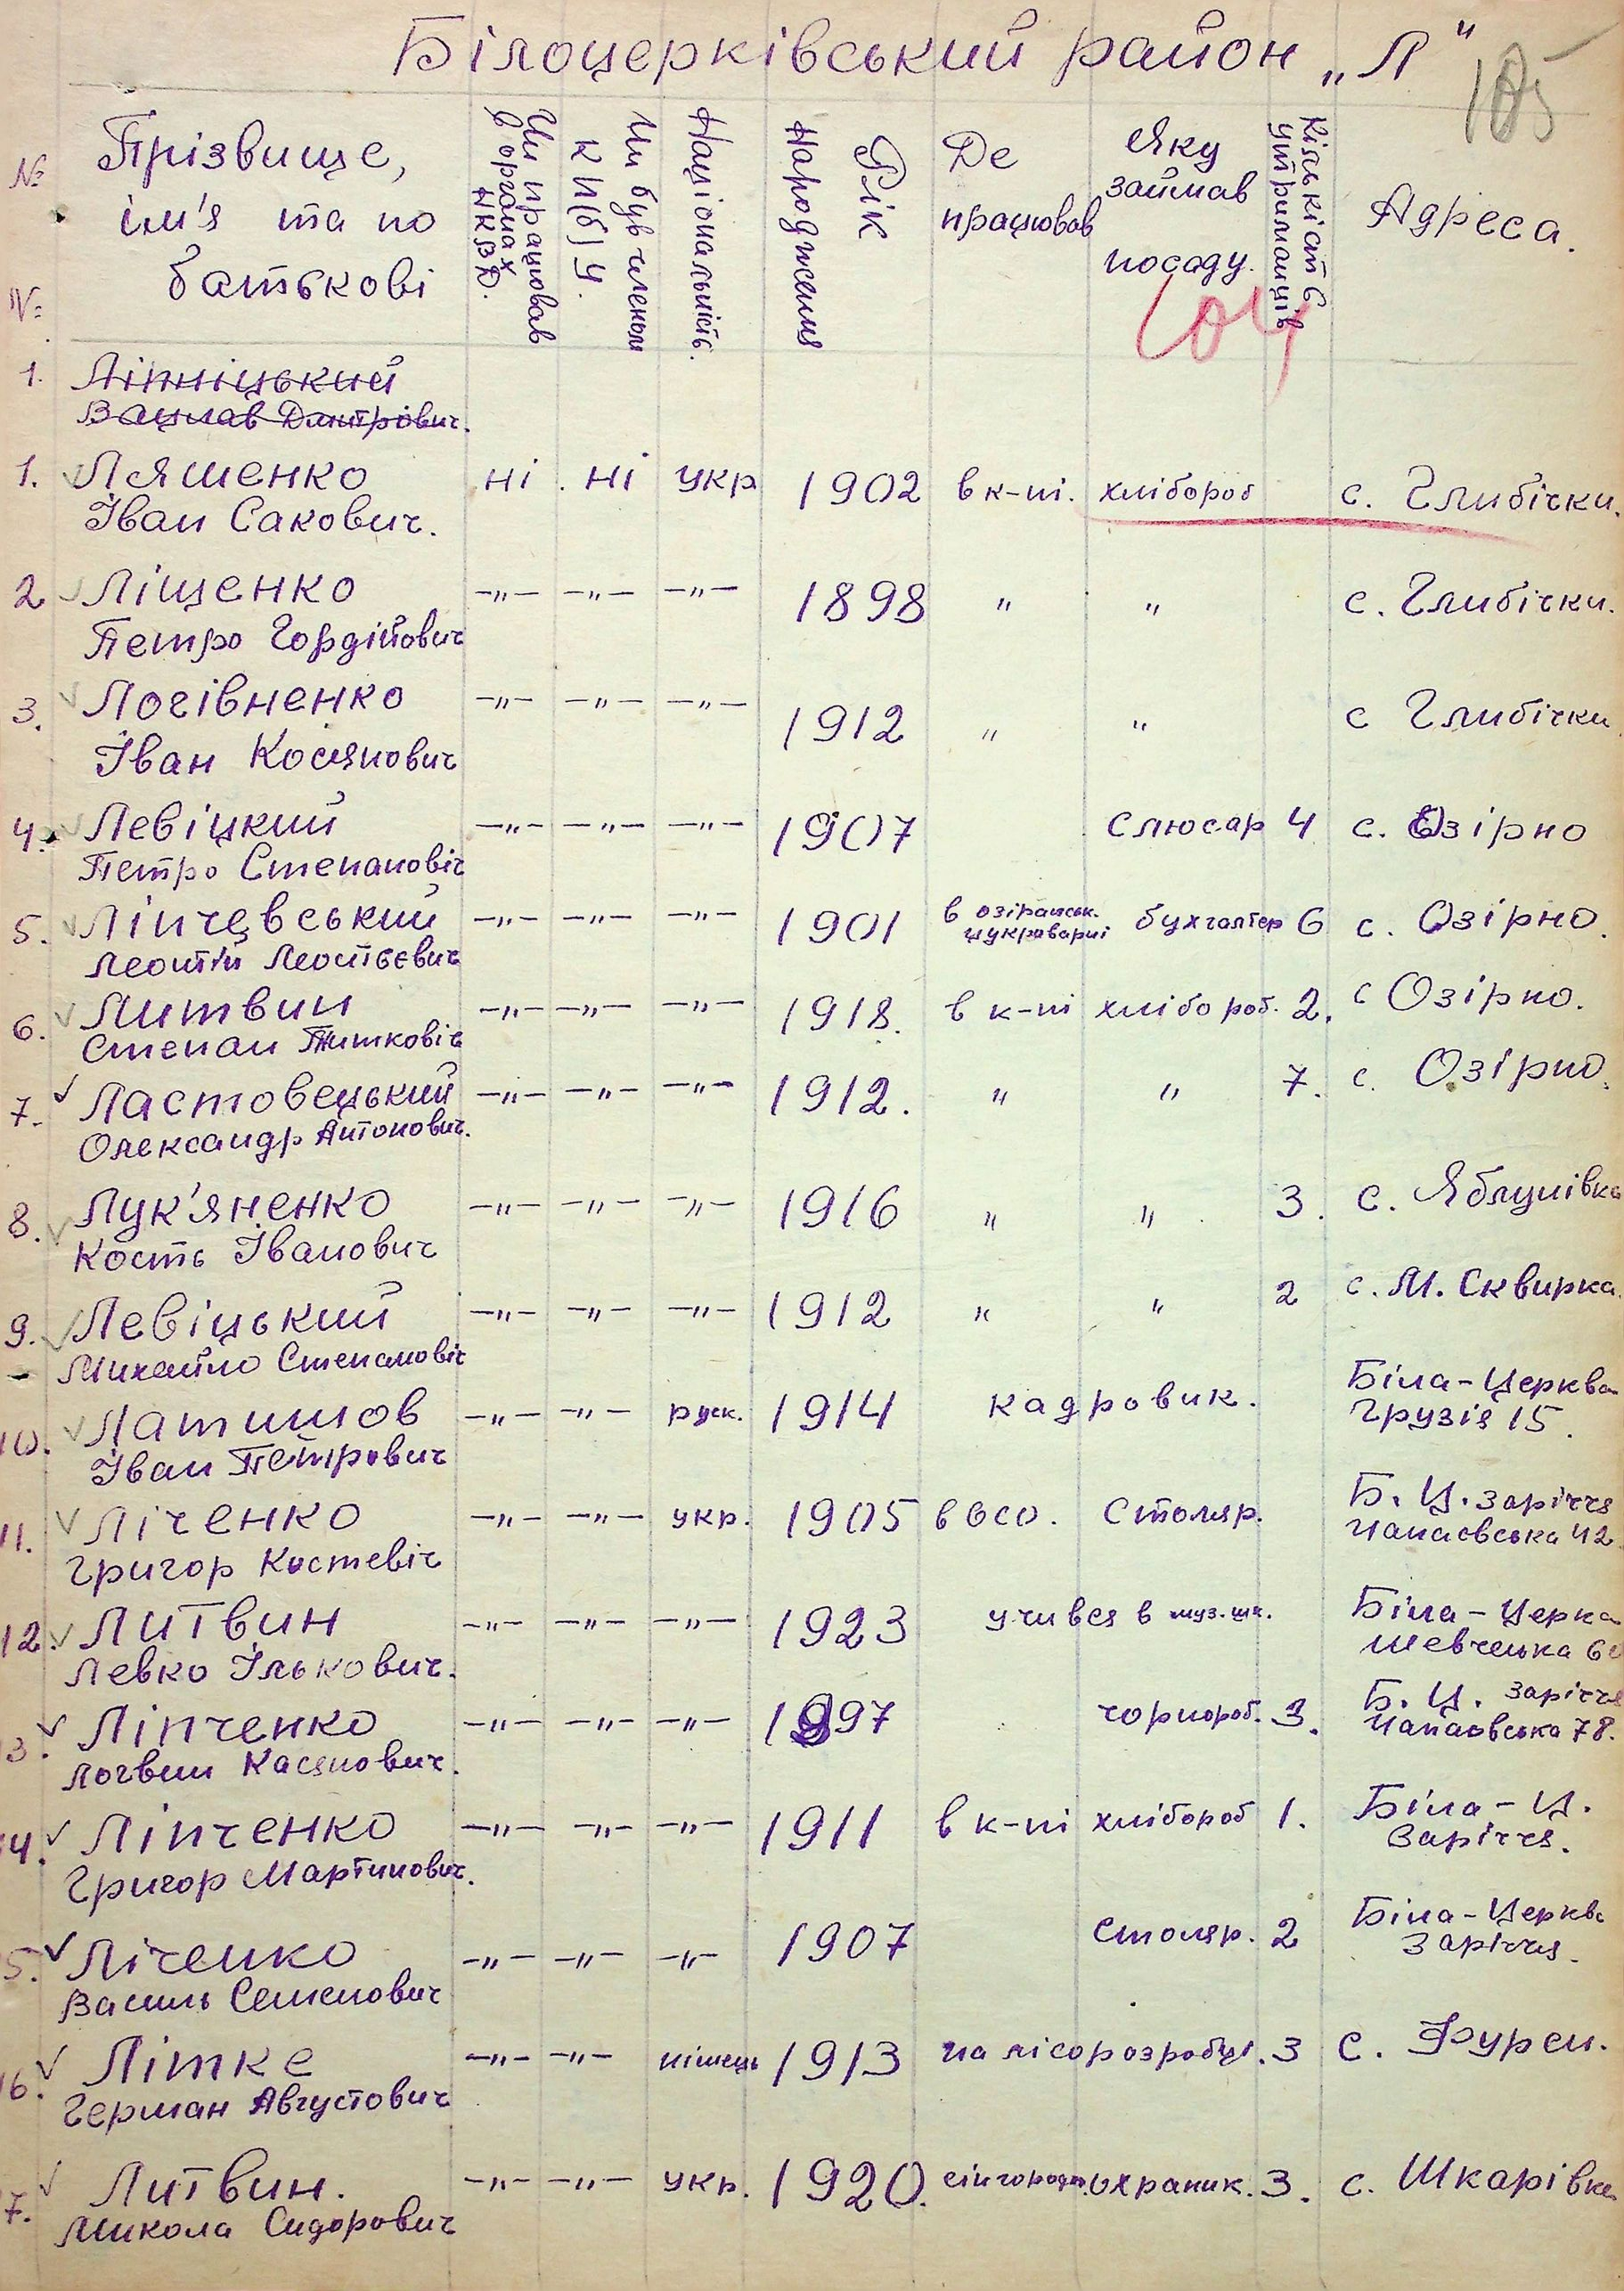 Білоцерківський район „Л"
105
№ №
Прізвище,
ім'я та по
батькові
Чи працював
в органах
НКВД.
Чи був членом
КП(б)У.
Національність.
Рік
Народження
Де
працював
Яку
займав
посаду.
Кількість
утриманців
Адреса.
1. Ліпніцький
Вацлав Дмитрович.
1. Ляшенко ні. ні укр 1902 в к-пі. хлібороб с. Глибічки.
Іван Сакович.
2 Ліщенко -„- -„- -„- 1898 „ „ с. Глибічки.
Петро Гордійович
3. Логівненко -„- -„- -„- 1912 „ „ с Глибічки
Іван Косянович
4. Левіцкий -„- -„- -„- 1907 Слюсар 4 с. Озірно
Петро Степановіч
5. Ліпчевський -„- -„- -„- 1901 в озіранськ. цукраварні бухгалтер 6 с. Озірно.
Леонтій Леонтьєвич
6. Литвин -„- -„- -„- 1918. в к-пі хлібороб. 2. с Озірно.
Степан Титковіч
7. Ластовецький -„- -„- -„- 1912. „ „ 7. с. Озірно.
Олександр Антонович.
8. Лук'яненко -„- -„- -„- 1916 „ „ 3. с. Яблунівка
Кость Іванович
9. Левіцький -„- -„- -„- 1912 „ „ 2 с. М. Сквирка.
Михайло Степановіч
10. Латишов -„- -„- руск. 1914 кадровик. Біла-Церква
Іван Петрович Грузія 15.
11. Ліченко -„- -„- укр. 1905 в осо. Столяр. Б. Ц. Заріччя
Григор Костевіч Чапаєвська 42
12. Литвин -„- -„- -„- 1923 учився в муз.шк. Біла-Церка
Левко Ількович. Шевченка 60
3. Ліпченко -„- -„- -„- 1897 чорнороб. 3. Б. Ц. Заріччя
Логвин Касянович. Чапаєвська 78.
4. Ліпченко -„- -„- -„- 1911 в к-пі хлібороб 1. Біла-Ц.
Григор Мартинович. Заріччя.
5. Ліченко -„- -„- -„- 1907 Столяр. 2 Біла-Церква
Василь Семенович Заріччя.
16. Літке -„- -„- німець 1913 на лісорозробці. 3 с. Фурси.
Герман Августович
7. Литвин. -„- -„- укр. 1920. охраник. 3. с. Шкарівка
Микола Сидорович